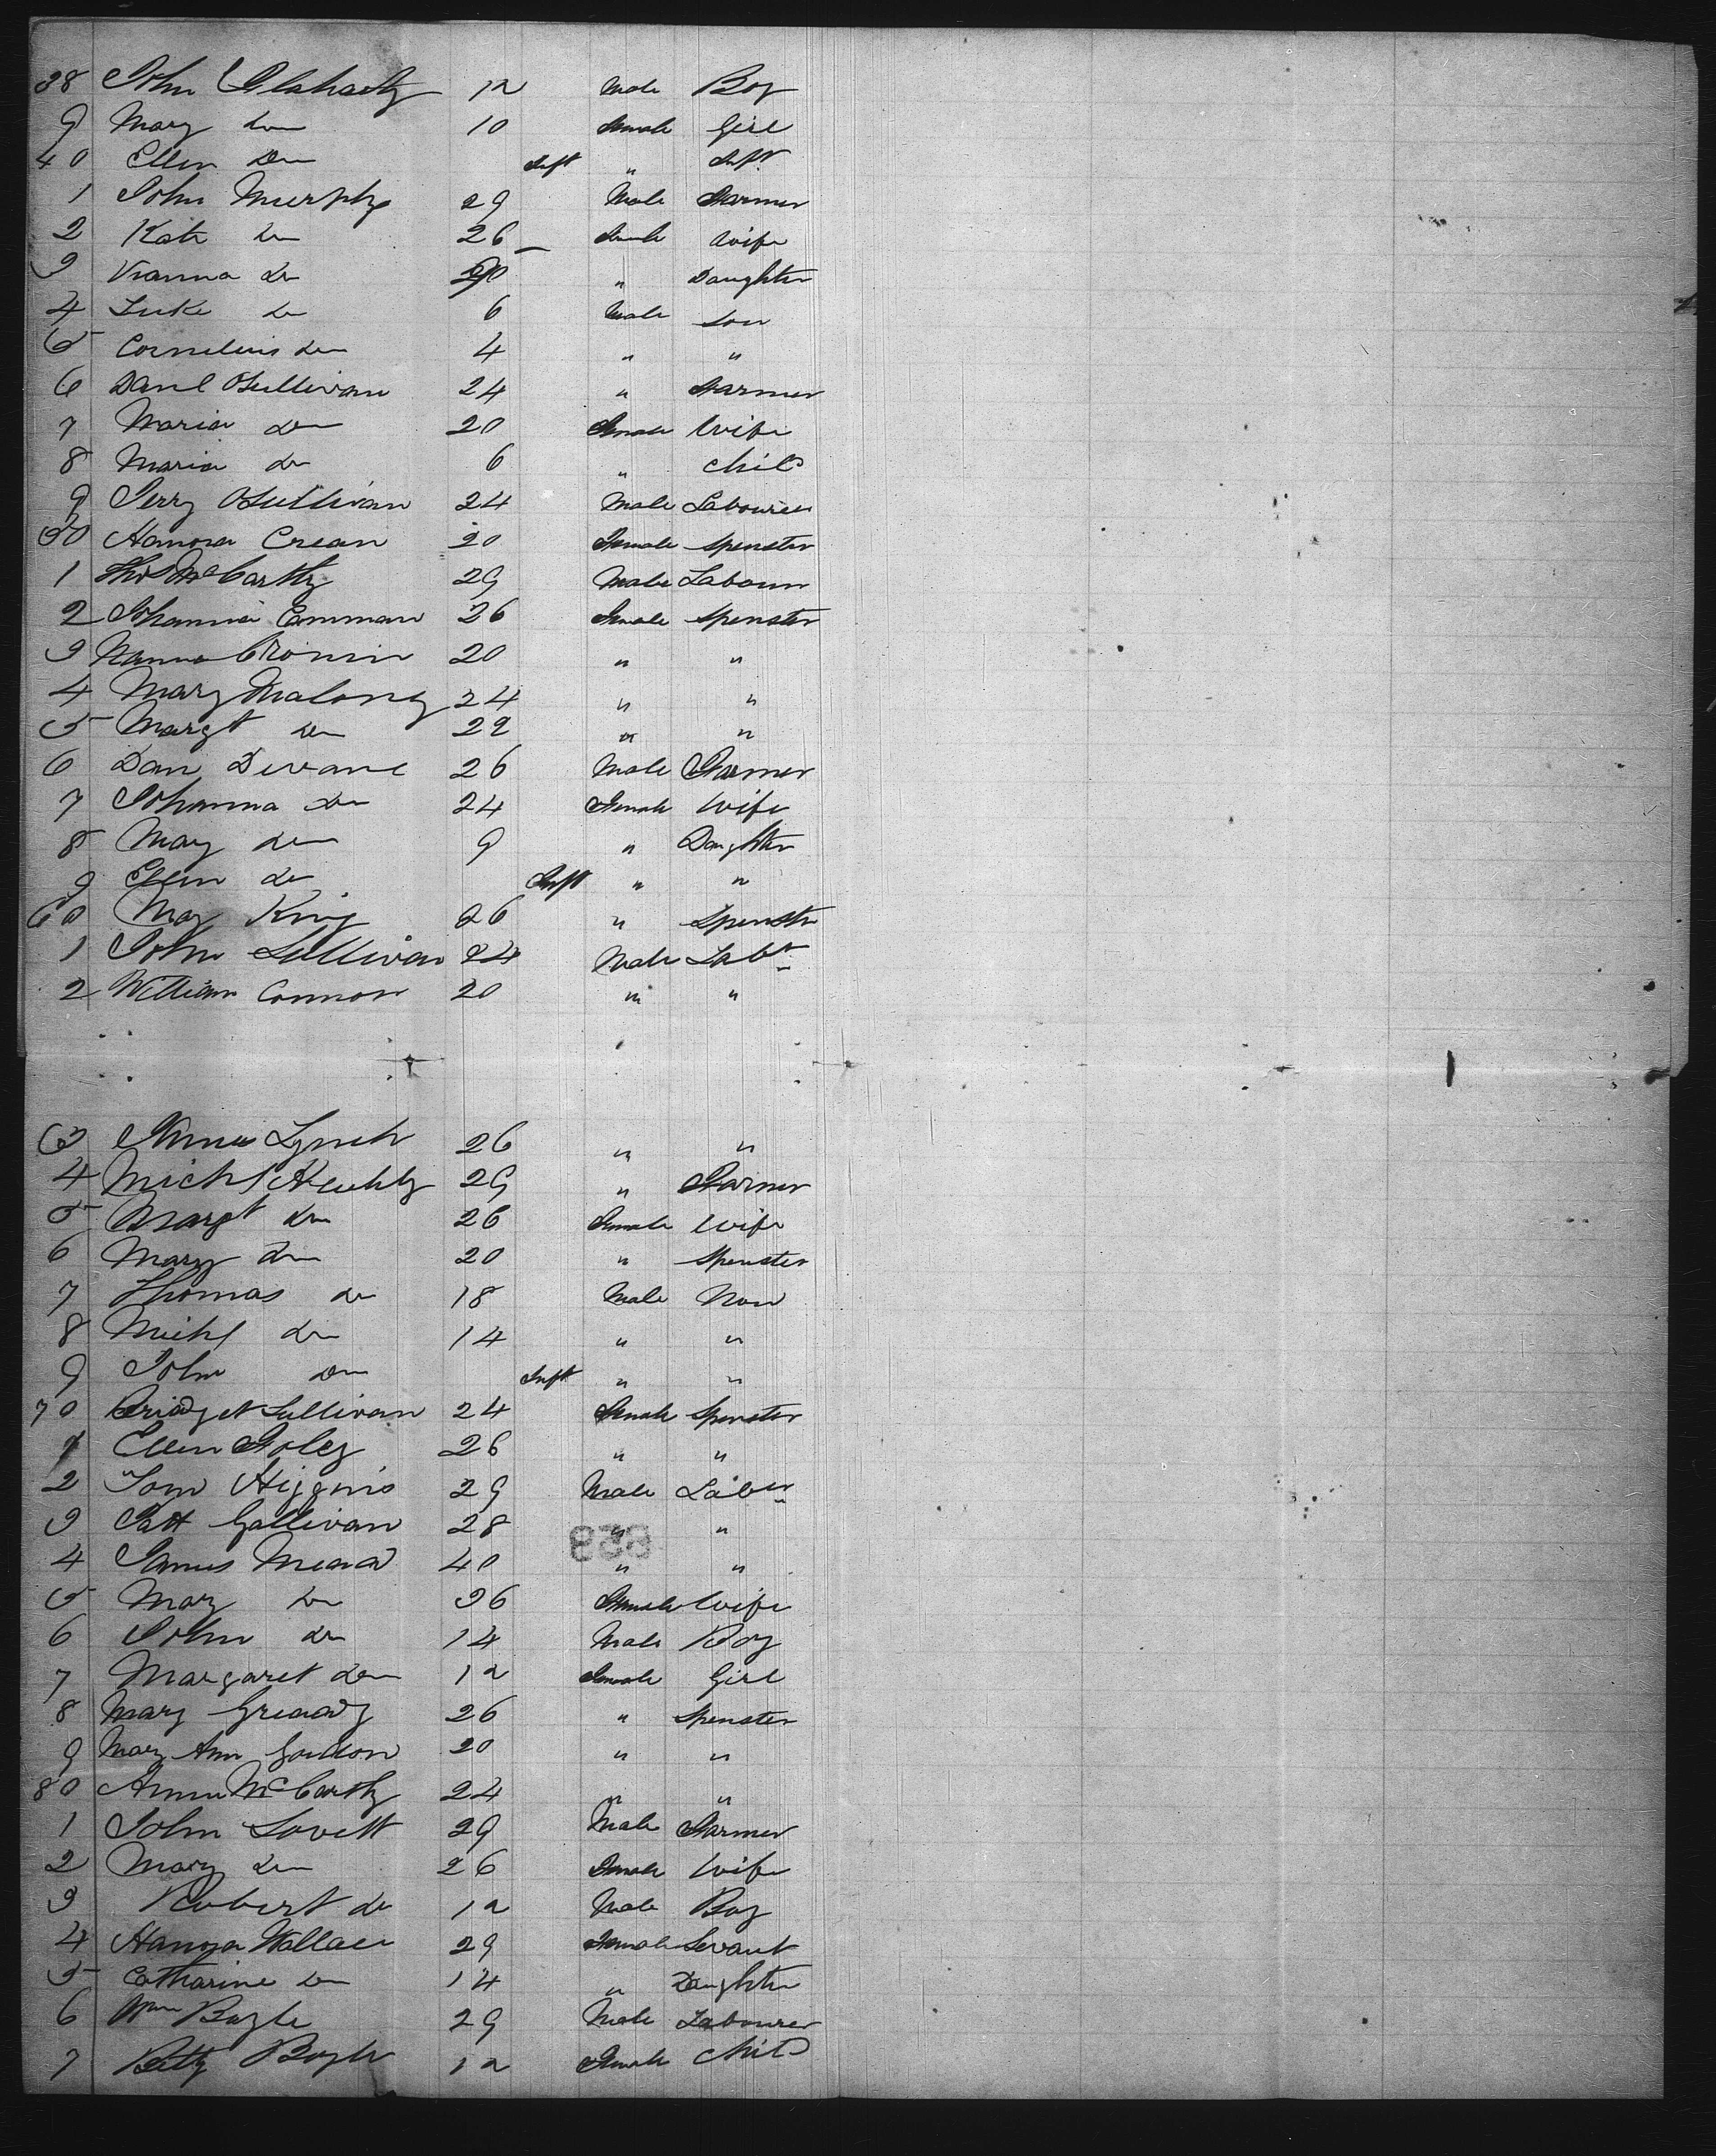 38 John Flaharty 12 Male Boy
9 Mary Do 10 Female Girl
40 Ellen Do Inft " Inft
1 John Murphy 29 Male Farmer
2 Kate Do 26 Female Wife
3 Do " Daughter
4 Luke Do 6 Male Son
5 Cornelius Do 4 " "
6 Danl OSullivan 24 " Farmer
7 Maria Do 20 Female Wife
8 Maria Do 6 " Child
9 Jerry OSullivan 24 Male Labourer
50 Hanora Crean 20 Female Spenster
1 Thos McCarthy 29 Male Labourer
2 Johanna 26 Female Spenster
3 Hanna Cronin 20 " "
4 Mary Malony 24 " "
5 Margt Do 22 " "
6 Dan Devane 26 Male Farmer
7 Johanna Do 24 Female Wife
8 Mary Do 9 " Daughter
9 Ellen Do Inft " "
60 May King 26 " Spenster
1 John Sullivan 24 Male Labr
2 William Connor 20 " "
63 Lynch 26 " "
4 Michl 29 " Farmer
5 Margt Do 26 Female Wife
6 Mary Do 20 " Spenster
7 Thomas Do 18 Male Non
8 Michl Do 14 " "
9 John Do Inft " "
70 Bridget Sullivan 24 Female Spenster
1 Ellen Foley 26 " "
2 Tom Higgins 29 Male Labr
3 Patt Gallivan 28 " "
4 James Mead 40 " "
5 Mary Do 36 Female Wife
6 John Do 14 Male Boy
7 Margaret Do 12 Female Girl
8 Mary Greaady 26 " Spenster
9 Mary Ann 20 " "
80 Annie McCarthy 24 " "
1 John Lovett 29 Male Farmer
2 Mary Do 26 Female Wife
3 Robert Do 12 Male Boy
4 Hanora Wallace 29 Female Sevant
5 Catharine Do 14 " Daughter
6 Wm Bogle 29 Male Labourer
7 Betty Bogle 12 Female Child